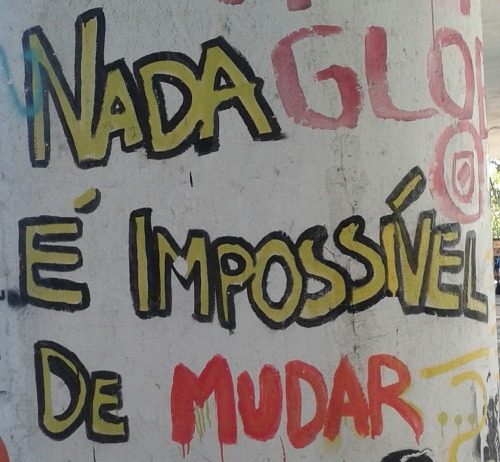 NADA
É IMPOSSÍVEL
DE MUDAR
GLO